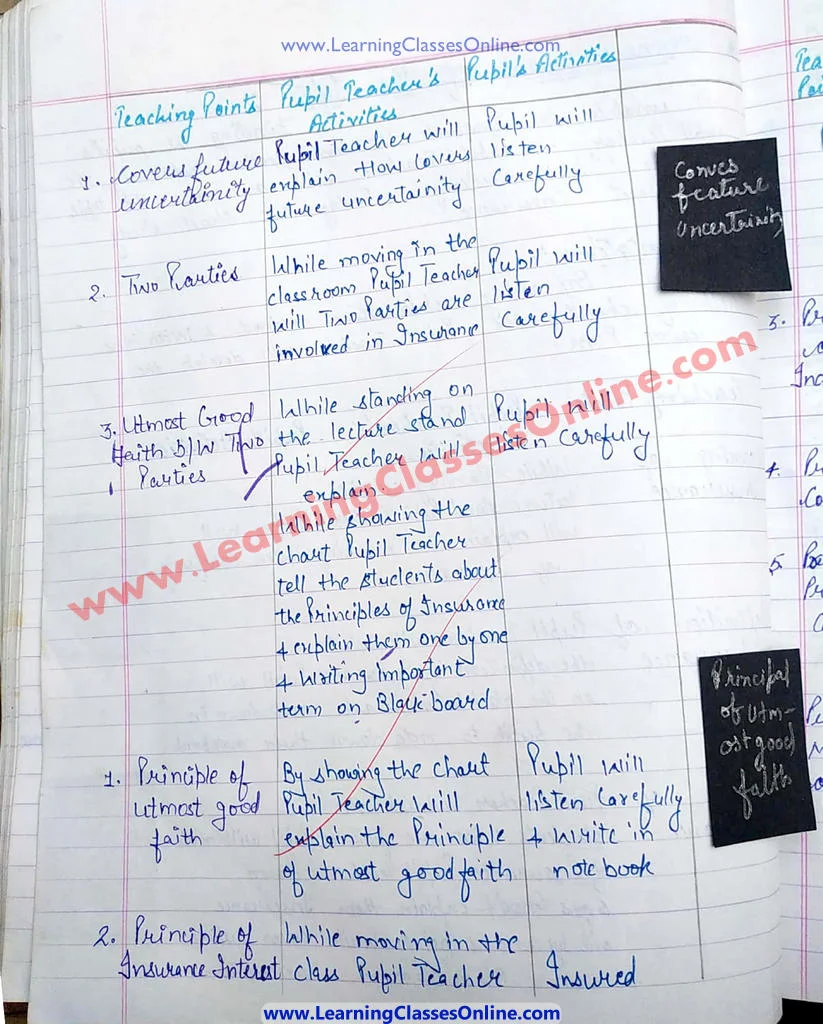 www.LearningClassesOnline.com
Teaching Points
Pupil Teacher's
Activities
Pupil's Activities
1. Covers future
uncertainity
Pupil Teacher will
explain How covers
future uncertainity
Pupil will
listen
Carefully
2. Two Parties
While moving in the
classroom Pupil Teacher
will Two Parties are
involved in Insurance
Pupil will
listen
Carefully
3. Utmost Good
Faith b/w Two
Parties
While standing on
the lecture stand
Pupil Teacher Will
explain.
Pupil Will
listen Carefully
While showing the
chart Pupil Teacher
tell the students about
the Principles of Insurance
+ explain them one by one
+ Writing Important
term on Black board
1. Principle of
utmost good
faith
By showing the chart
Pupil Teacher Will
explain the Principle
of utmost good faith
Pupil Will
listen Carefully
+ write in
note book
2. Principle of
Insurance Interest
While moving in the
class Pupil Teacher
Insured
Conves
feature
uncertainity
Principal
of utm-
ost good
faith
Tea
Poi
3. Pr
Inc
4. Pr
Co
5.
Pr
www.LearningClassesOnline.com
www.LearningClassesOnline.com